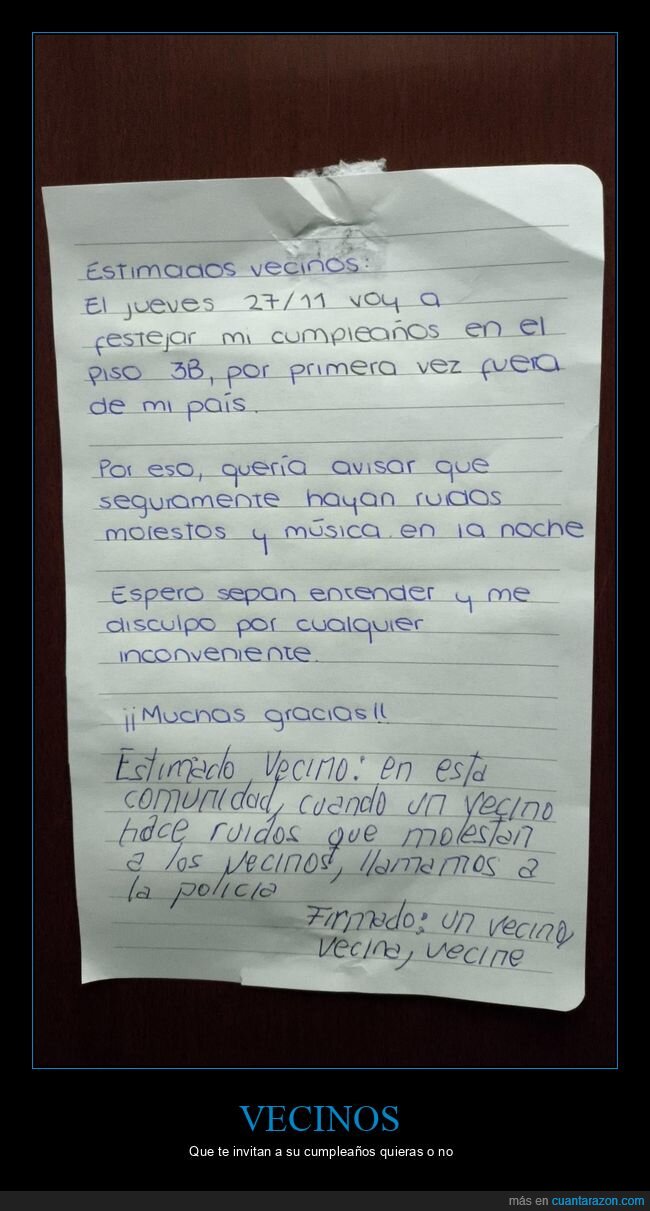 Estimados vecinos:
El jueves 27/11 voy a
festejar mi cumpleaños en el
piso 3B, por primera vez fuera
de mi país.
Por eso, quería avisar que
seguramente hayan ruidos
molestos y música en la noche
Espero sepan entender y me
disculpo por cualquier
inconveniente.
¡¡Muchas gracias!!
Estimado Vecino: en esta
comunidad, cuando un vecino
hace ruidos que molestan
a los vecinos, llamamos a
la policia
Firmado: un vecino,
vecina, vecine
VECINOS
Que te invitan a su cumpleaños quieras o no
más en cuantarazon.com